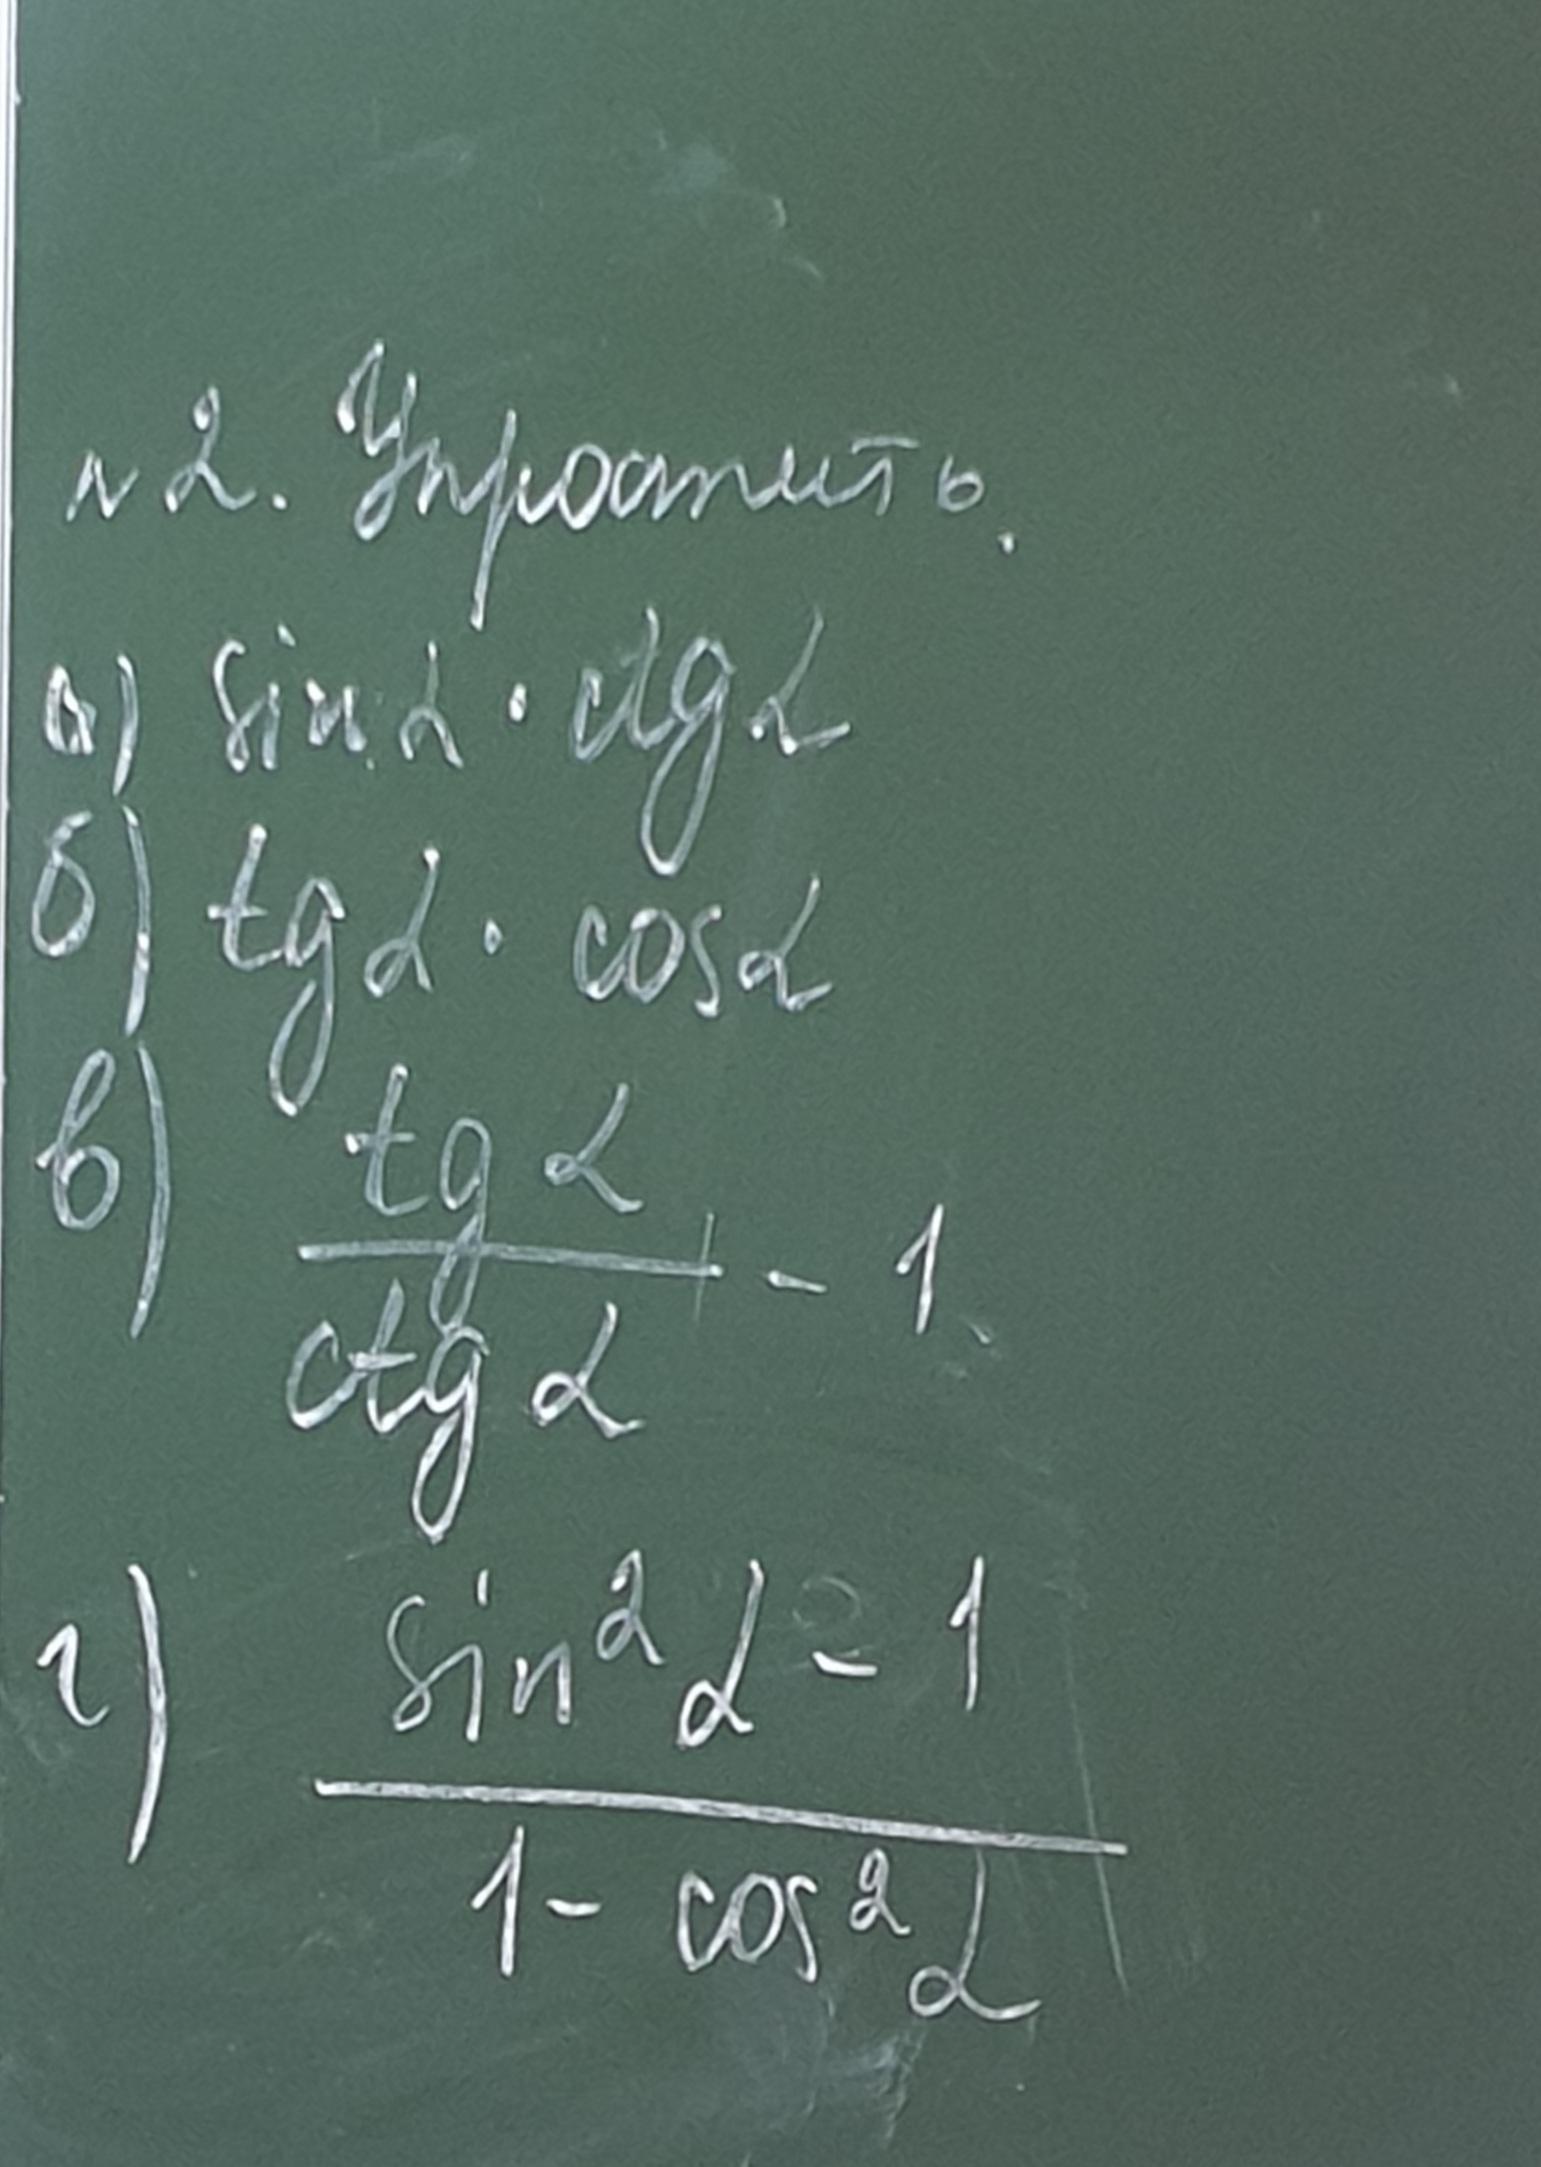 №2. Упростить.
а) sin α · ctg α
б) tg α · cos α
в) tg α / ctg α - 1
г) sin² α - 1
1 - cos² α